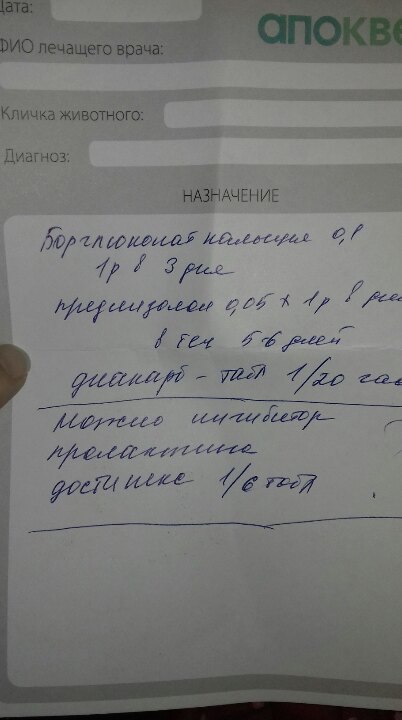 Дата:
апокве
ФИО лечащего врача:
Кличка животного:
Диагноз:
НАЗНАЧЕНИЕ
Борглюконат кальция 0,1
1р в 3 дня
преднизолон 0,05 х 1р в ден
в теч 5-6 дней
диакарб - табл 1/20 час
Можно ингибитор
пролактина
достинекс 1/6 табл